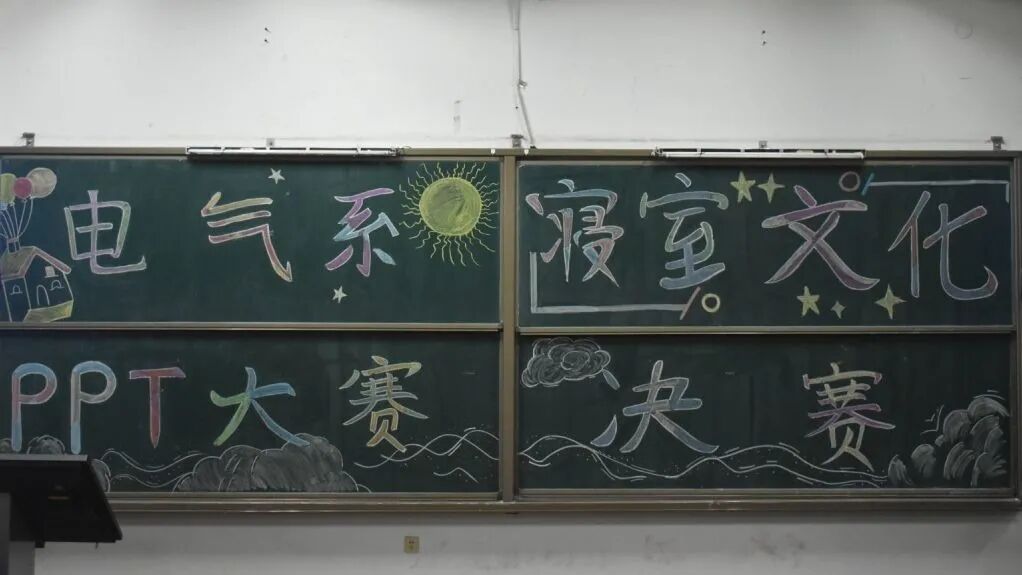 电气系 寝室文化
PPT大赛 决赛